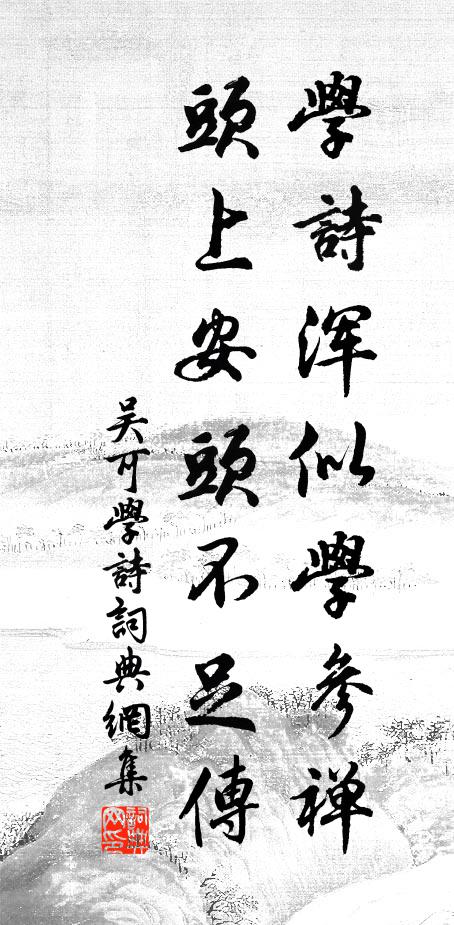 學詩浑似學參禅
頭上安頭不足傳
吴可學詩詞典網集